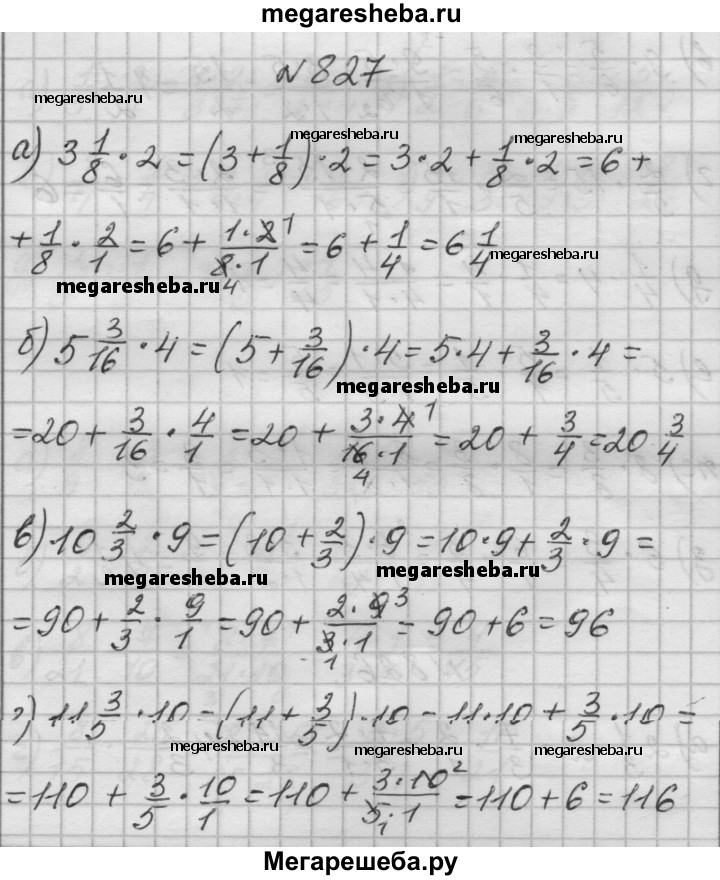 megaresheba.ru
№827
megaresheba.ru megaresheba.ru megaresheba.ru
а) 3 1/8 · 2 = (3 + 1/8) · 2 = 3 · 2 + 1/8 · 2 = 6 +
+ 1/8 · 2/1 = 6 + 1·2 1/8·1 4 = 6 + 1/4 = 6 1/4
megaresheba.ru megaresheba.ru
б) 5 3/16 · 4 = (5 + 3/16) · 4 = 5·4 + 3/16 · 4 =
megaresheba.ru
= 20 + 3/16 · 4/1 = 20 + 3·4 1/16·1 4 = 20 + 3/4 = 20 3/4
в) 10 2/3 · 9 = (10 + 2/3) · 9 = 10·9 + 2/3 · 9 =
megaresheba.ru megaresheba.ru
= 90 + 2/3 · 9/1 = 90 + 2·9 3/3·1 1 = 90 + 6 = 96
г) 11 3/5 · 10 = (11 + 3/5) · 10 = 11·10 + 3/5 · 10 =
megaresheba.ru megaresheba.ru megaresheba.ru
= 110 + 3/5 · 10/1 = 110 + 3·10 2/5·1 1 = 110 + 6 = 116
Мегарешеба.ру